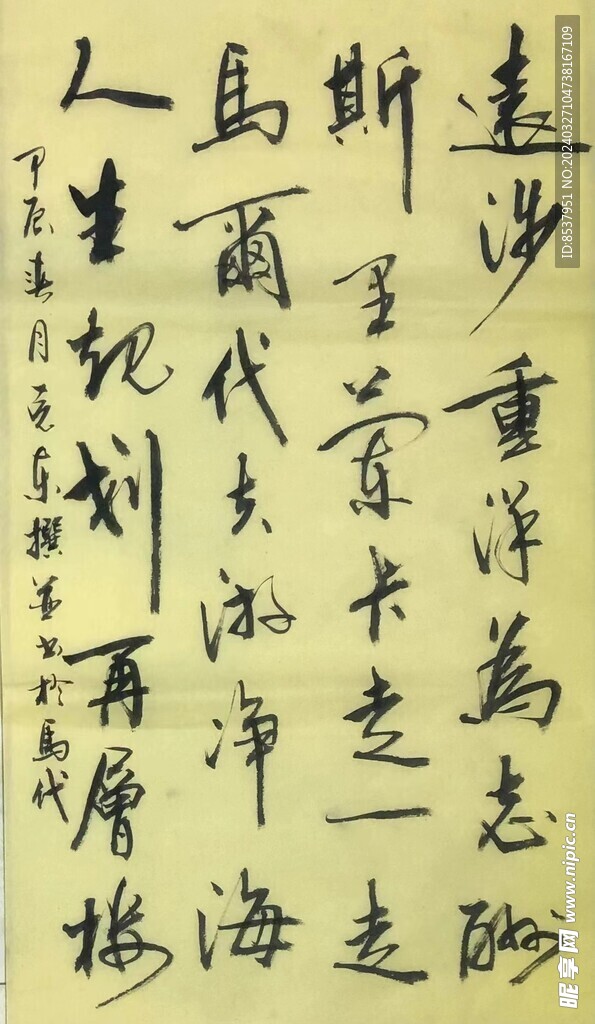 遠涉重洋為志酬
斯里蘭卡走一走
馬爾代去游净海
人生規划再層楼
甲辰春月克東撰並书於馬代
ID:8537951 NO:20240327104738167109
昵享网 www.nipic.cn